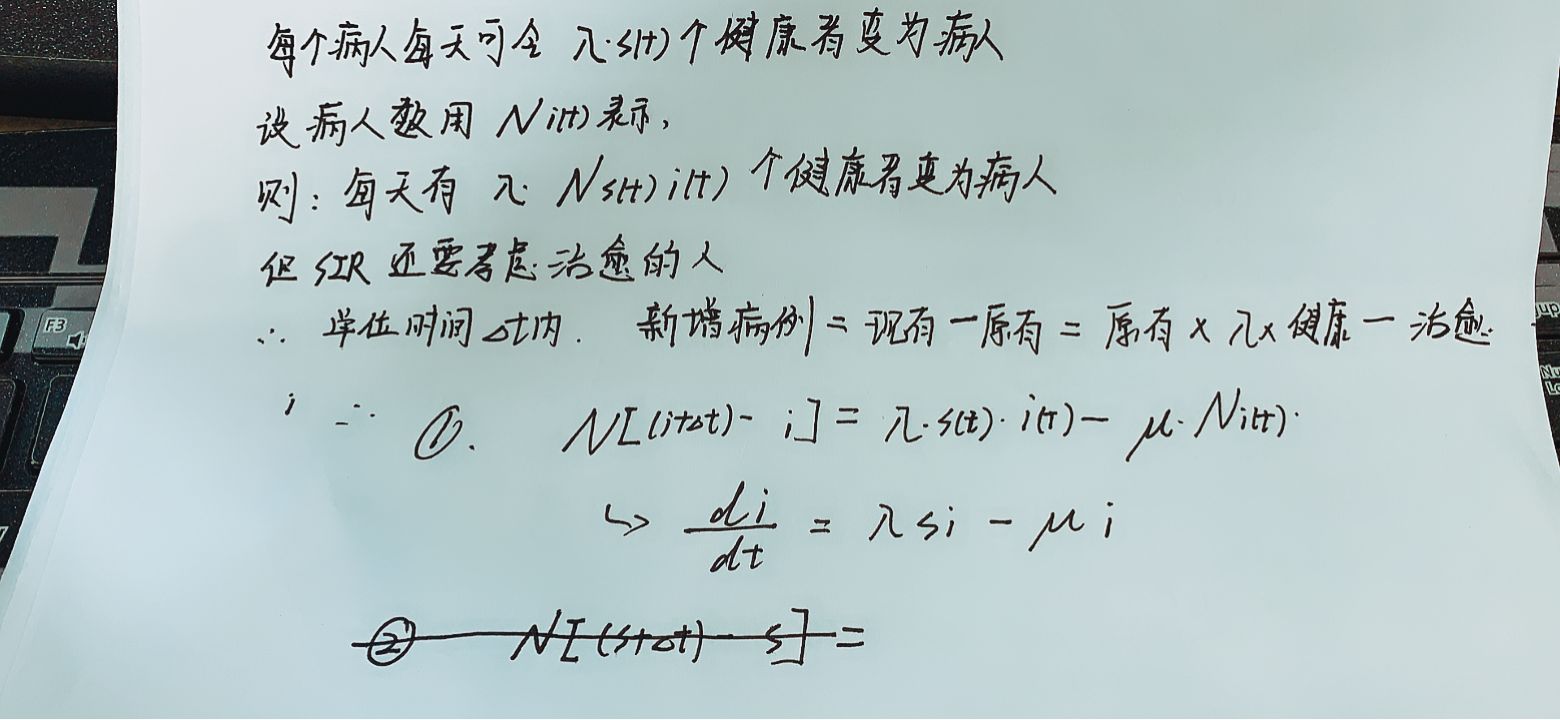 每个病人每天可令 λ·s(t)个健康者变为病人
设病人数用 Ni(t)表示,
则: 每天有 λ· Ns(t)i(t)个健康者变为病人
但 SIR 还要考虑治愈的人
∴ 单位时间Δt内. 新增病例=现有-原有=原有×λ×健康-治愈.
i ∴ ①. N[(i+Δt)- i]=λ·s(t)·i(t)- μ·Ni(t).
↳ di/dt = λsi - μi
② N[(s+Δt)-s]=
F3